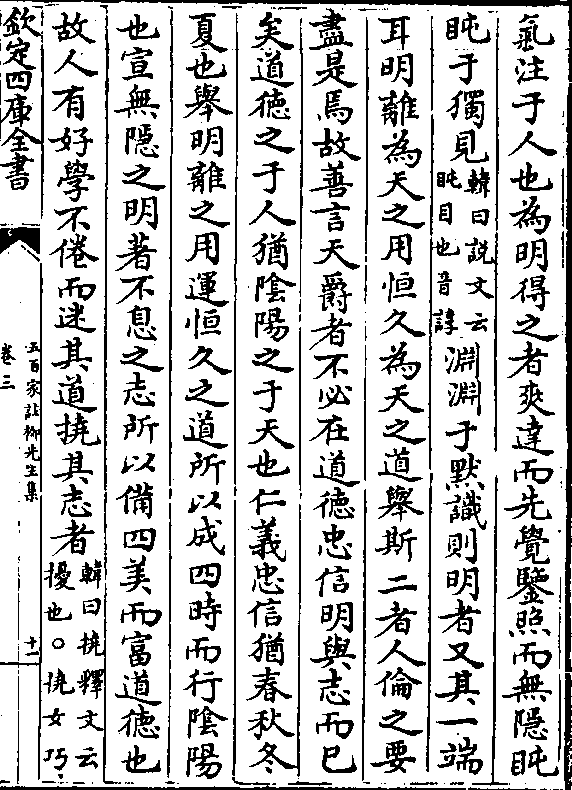 氣注于人也為明得之者爽達而先覺鑒照而無隱盹
盹于獨見韓曰說文云盹目也音諄淵淵于默識則明者又其一端
耳明離為天之用恒久為天之道舉斯二者人倫之要
盡是焉故善言天爵者不必在道德忠信明與志而已
矣道德之于人猶陰陽之于天也仁義忠信猶春秋冬
夏也舉明離之用運恒久之道所以成四時而行陰陽
也宣無隱之明著不息之志所以備四美而富道德也
故人有好學不倦而迷其道撓其志者韓曰撓釋文云擾也○撓女巧
欽定四庫全書
五百家註柳先生集
卷三
十一